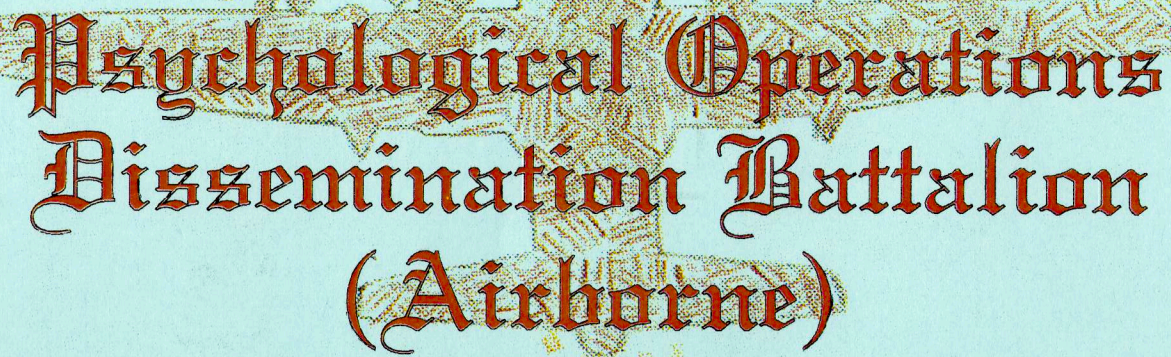 Psychological Operations
Dissemination Battalion
(Airborne)